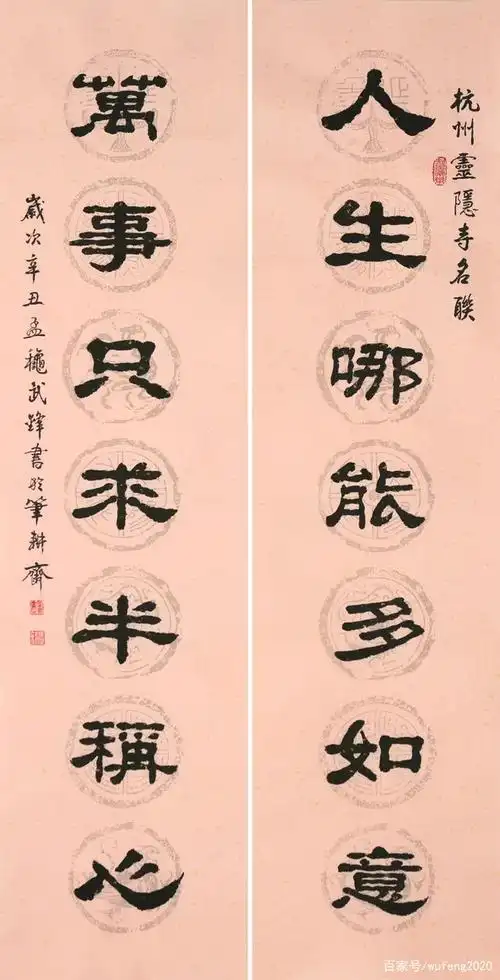 杭州靈隱寺名聯
人生哪能多如意
萬事只求半稱心
歲次辛丑孟穐武鋒書於筆耕齋
百家号/wufeng2020